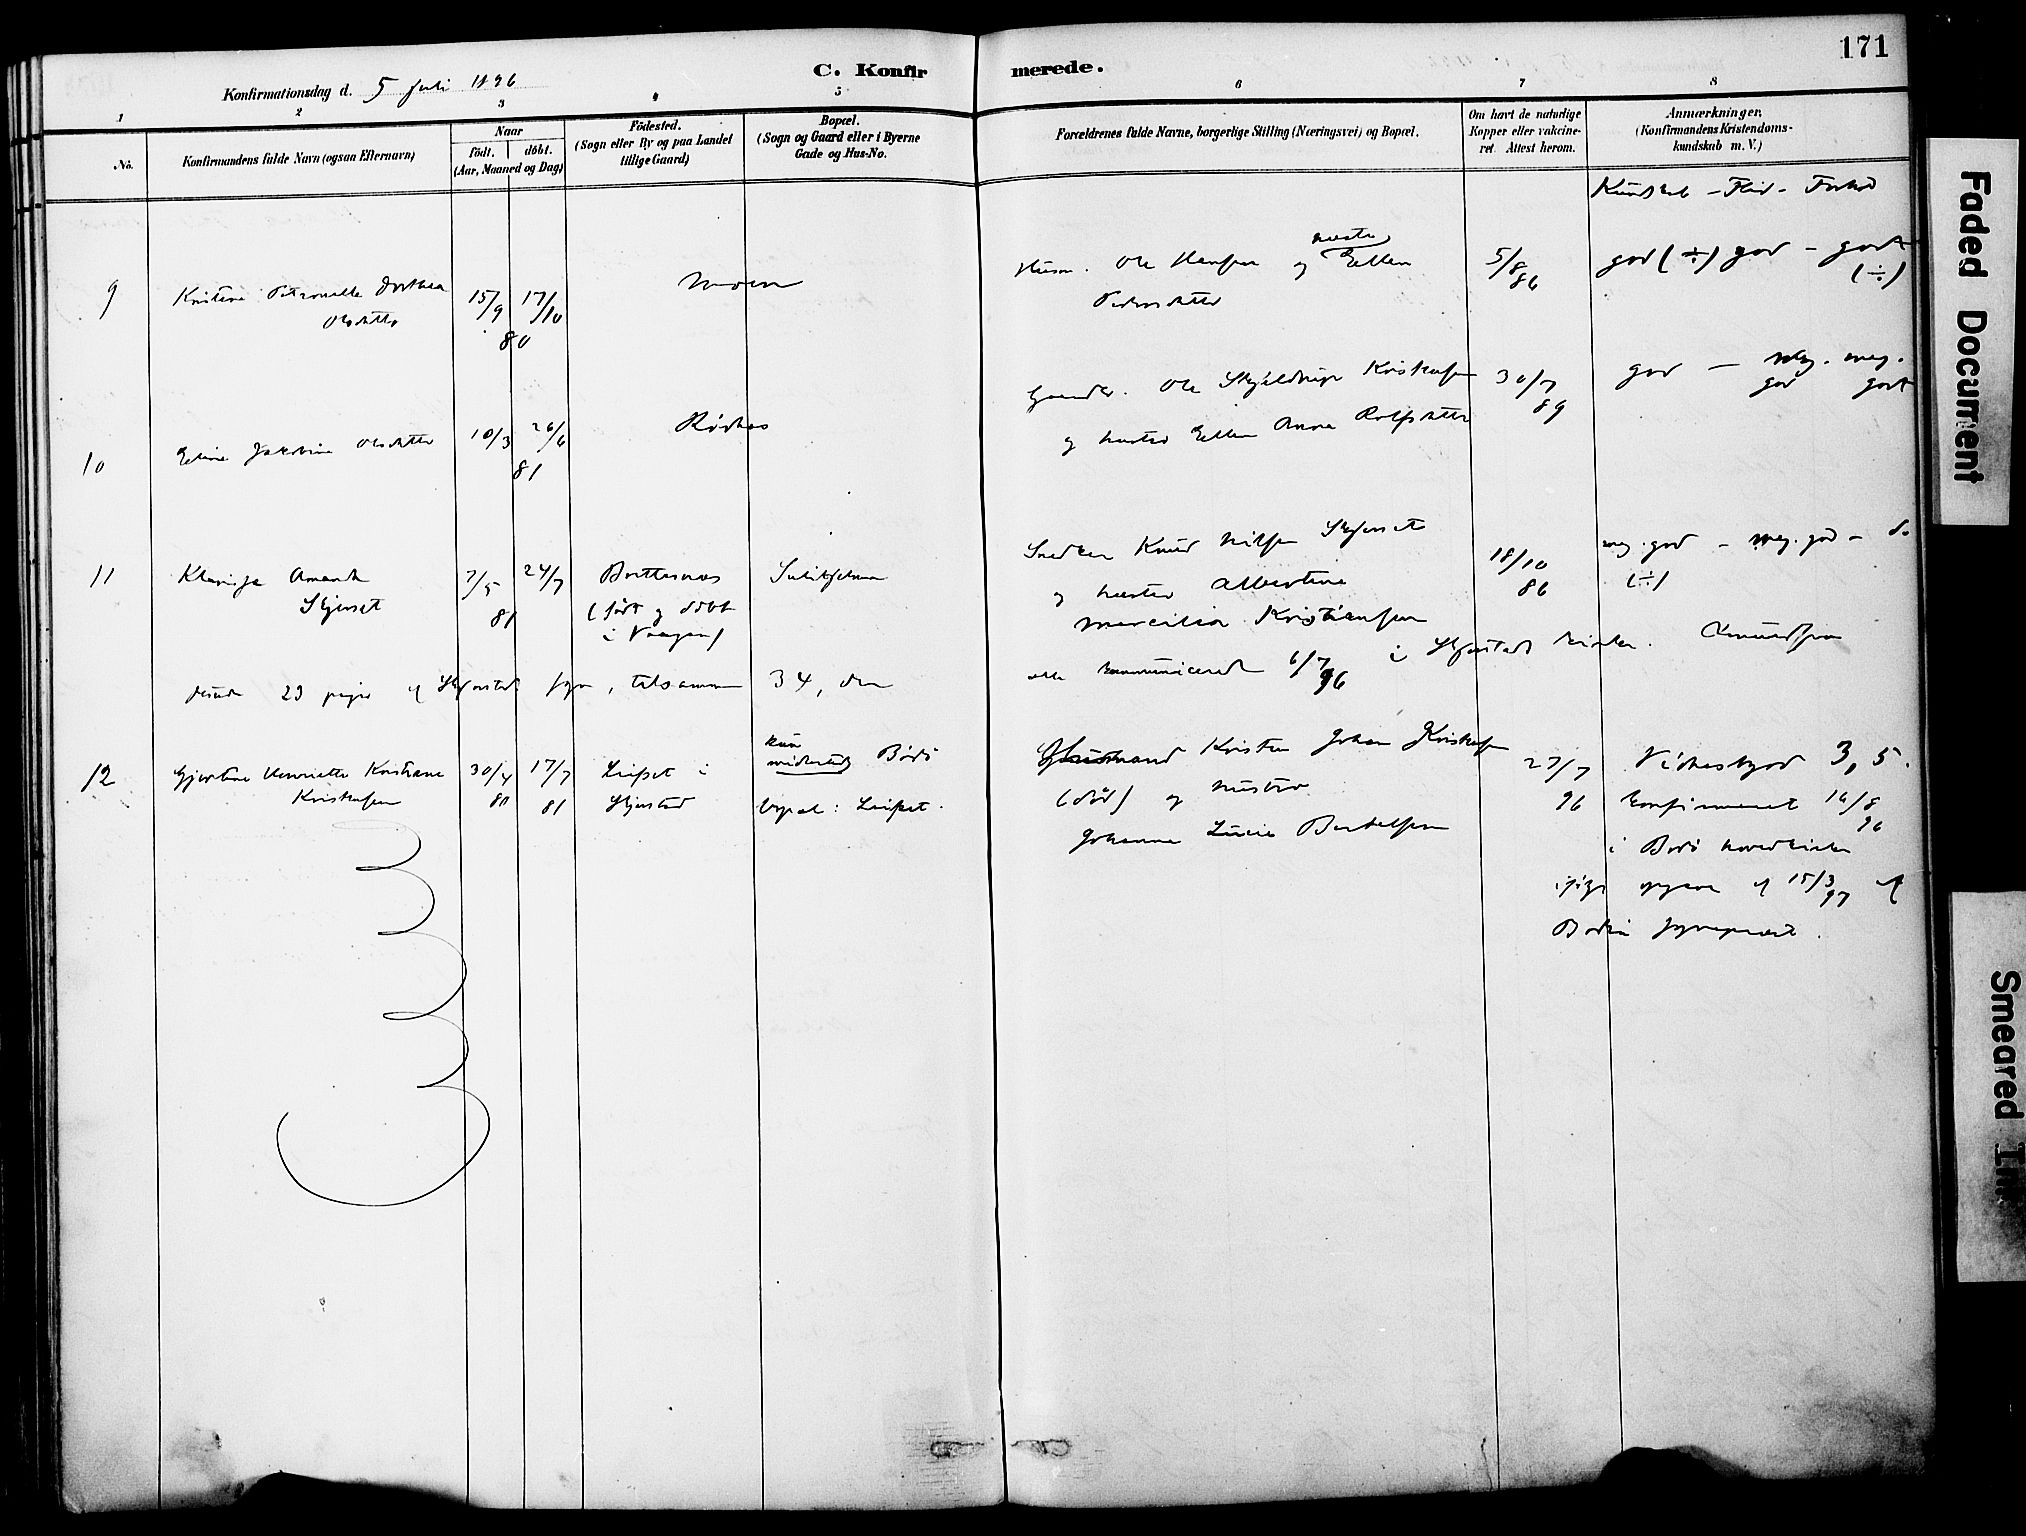 171
C. Konfirmerede.
Konfirmationsdag d. 5 Juli 1896
1 2 3 4 5 6 7 8
No.
Konfirmandens fulde Navn (ogsaa Efternavn)
Naar
født. døbt.
(Aar, Maaned og Dag)
Födested.
(Sogn eller By og paa Landet
tillige Gaard)
Bopæl.
(Sogn og Gaard eller i Byerne
Gade og Hus-No.
Forældrenes fulde Navne, borgerlige Stilling (Næringsvei) og Bopæl.
Om havt de naturlige
Kopper eller vakcine-
ret. Attest herom.
Anmærkninger.
(Konfirmandens Kristendoms-
kundskab m. V.)
Kundskab - Flid - Forhold
9 Kristine Petronelle Dorthea
Olsdatter
15/9 17/10
80
Moen
Husm. Ole Hansen og hustru Ellen
Pedersdatter
5/8 86
god (÷) god - godt
(÷)
10 Eline Jakobine Olsdatter
10/3 26/6
81
Gaardbr. Ole Skjeldrup Kristofsen
og hustru Ellen Anna Rolfsdatter
30/7 89
god - meg. meg.
god godt
11 Klarisse Amanda
Skjerset
7/5 24/7
81
Brettesnes
(født og döbt
i Vaagan)
Sulitjelma
Snedker Knud Nilsen Skjerset
og hustru Albertine
Marcilia Kristiansen
18/10 86
meg. god - meg. god - do
(÷)
desuden 23 piger af Skjerstad sogn, tilsammen 34, den
alle kommunicerede 6/7 96 i Skjerstad kirke. Knudssen
12 Gjertine Henriette Kristiane
Kristofsen
30/4 17/7
81 81
Leifset i
Skjerstad
kun
midlertidig Bodö
bopæl: Leifset.
Husmand Kristen Johan Kristofsen
(död) og hustru
Johanna Lucie Bertelsen
27/7
96
Vidnesbyrd 3,5.
konfirmeret 16/8 96
i Bodö hovedkirke
ifölge opgave af 15/3 97 af
Bodin sogneprest.
Faded Document
Smeared Ink